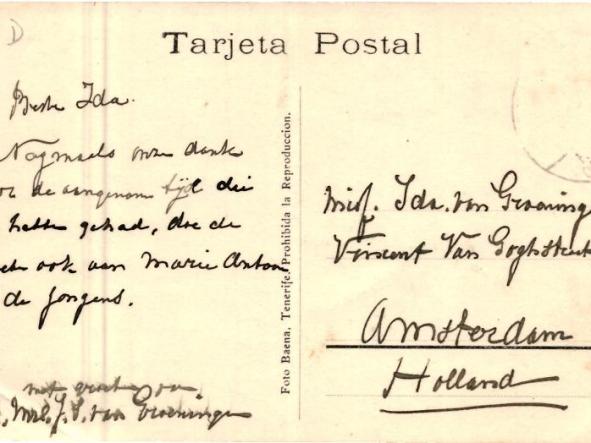 Tarjeta Postal
Beste Ida.
Nogmaals onze dank
de aangename tijd die
hebben gehad, doe de
ook aan Marie Anton
de Jongens.
met groeten van
Mrs. J. S. van Groeninge
Foto Baena, Tenerife. Prohibida la Reproduccion.
Miss. Ida. van Groeninge
Vincent Van Goghstraat
Amsterdam
Holland